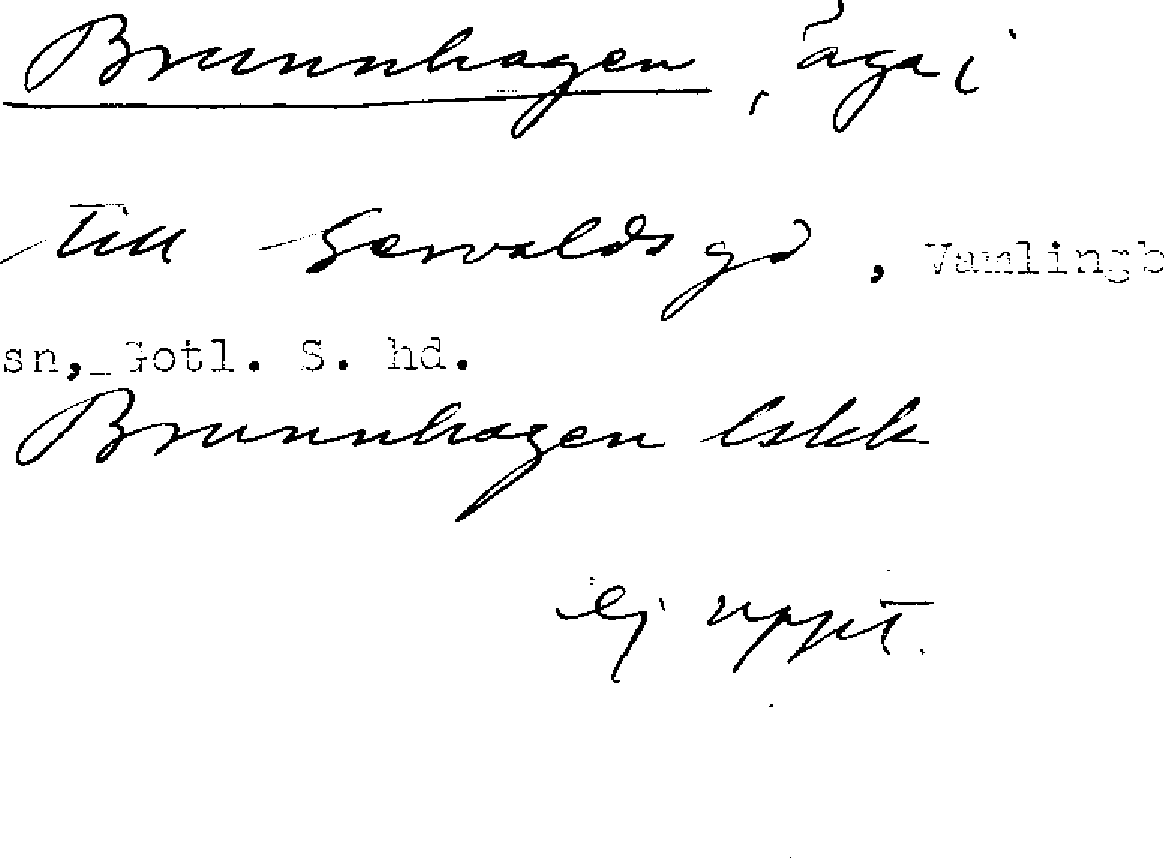 Brunnhagen, äga i
till Gervalds gd, Vamlingb
sn, Gotl. S. hd.
Brunnhagen lskk
ej uppt.